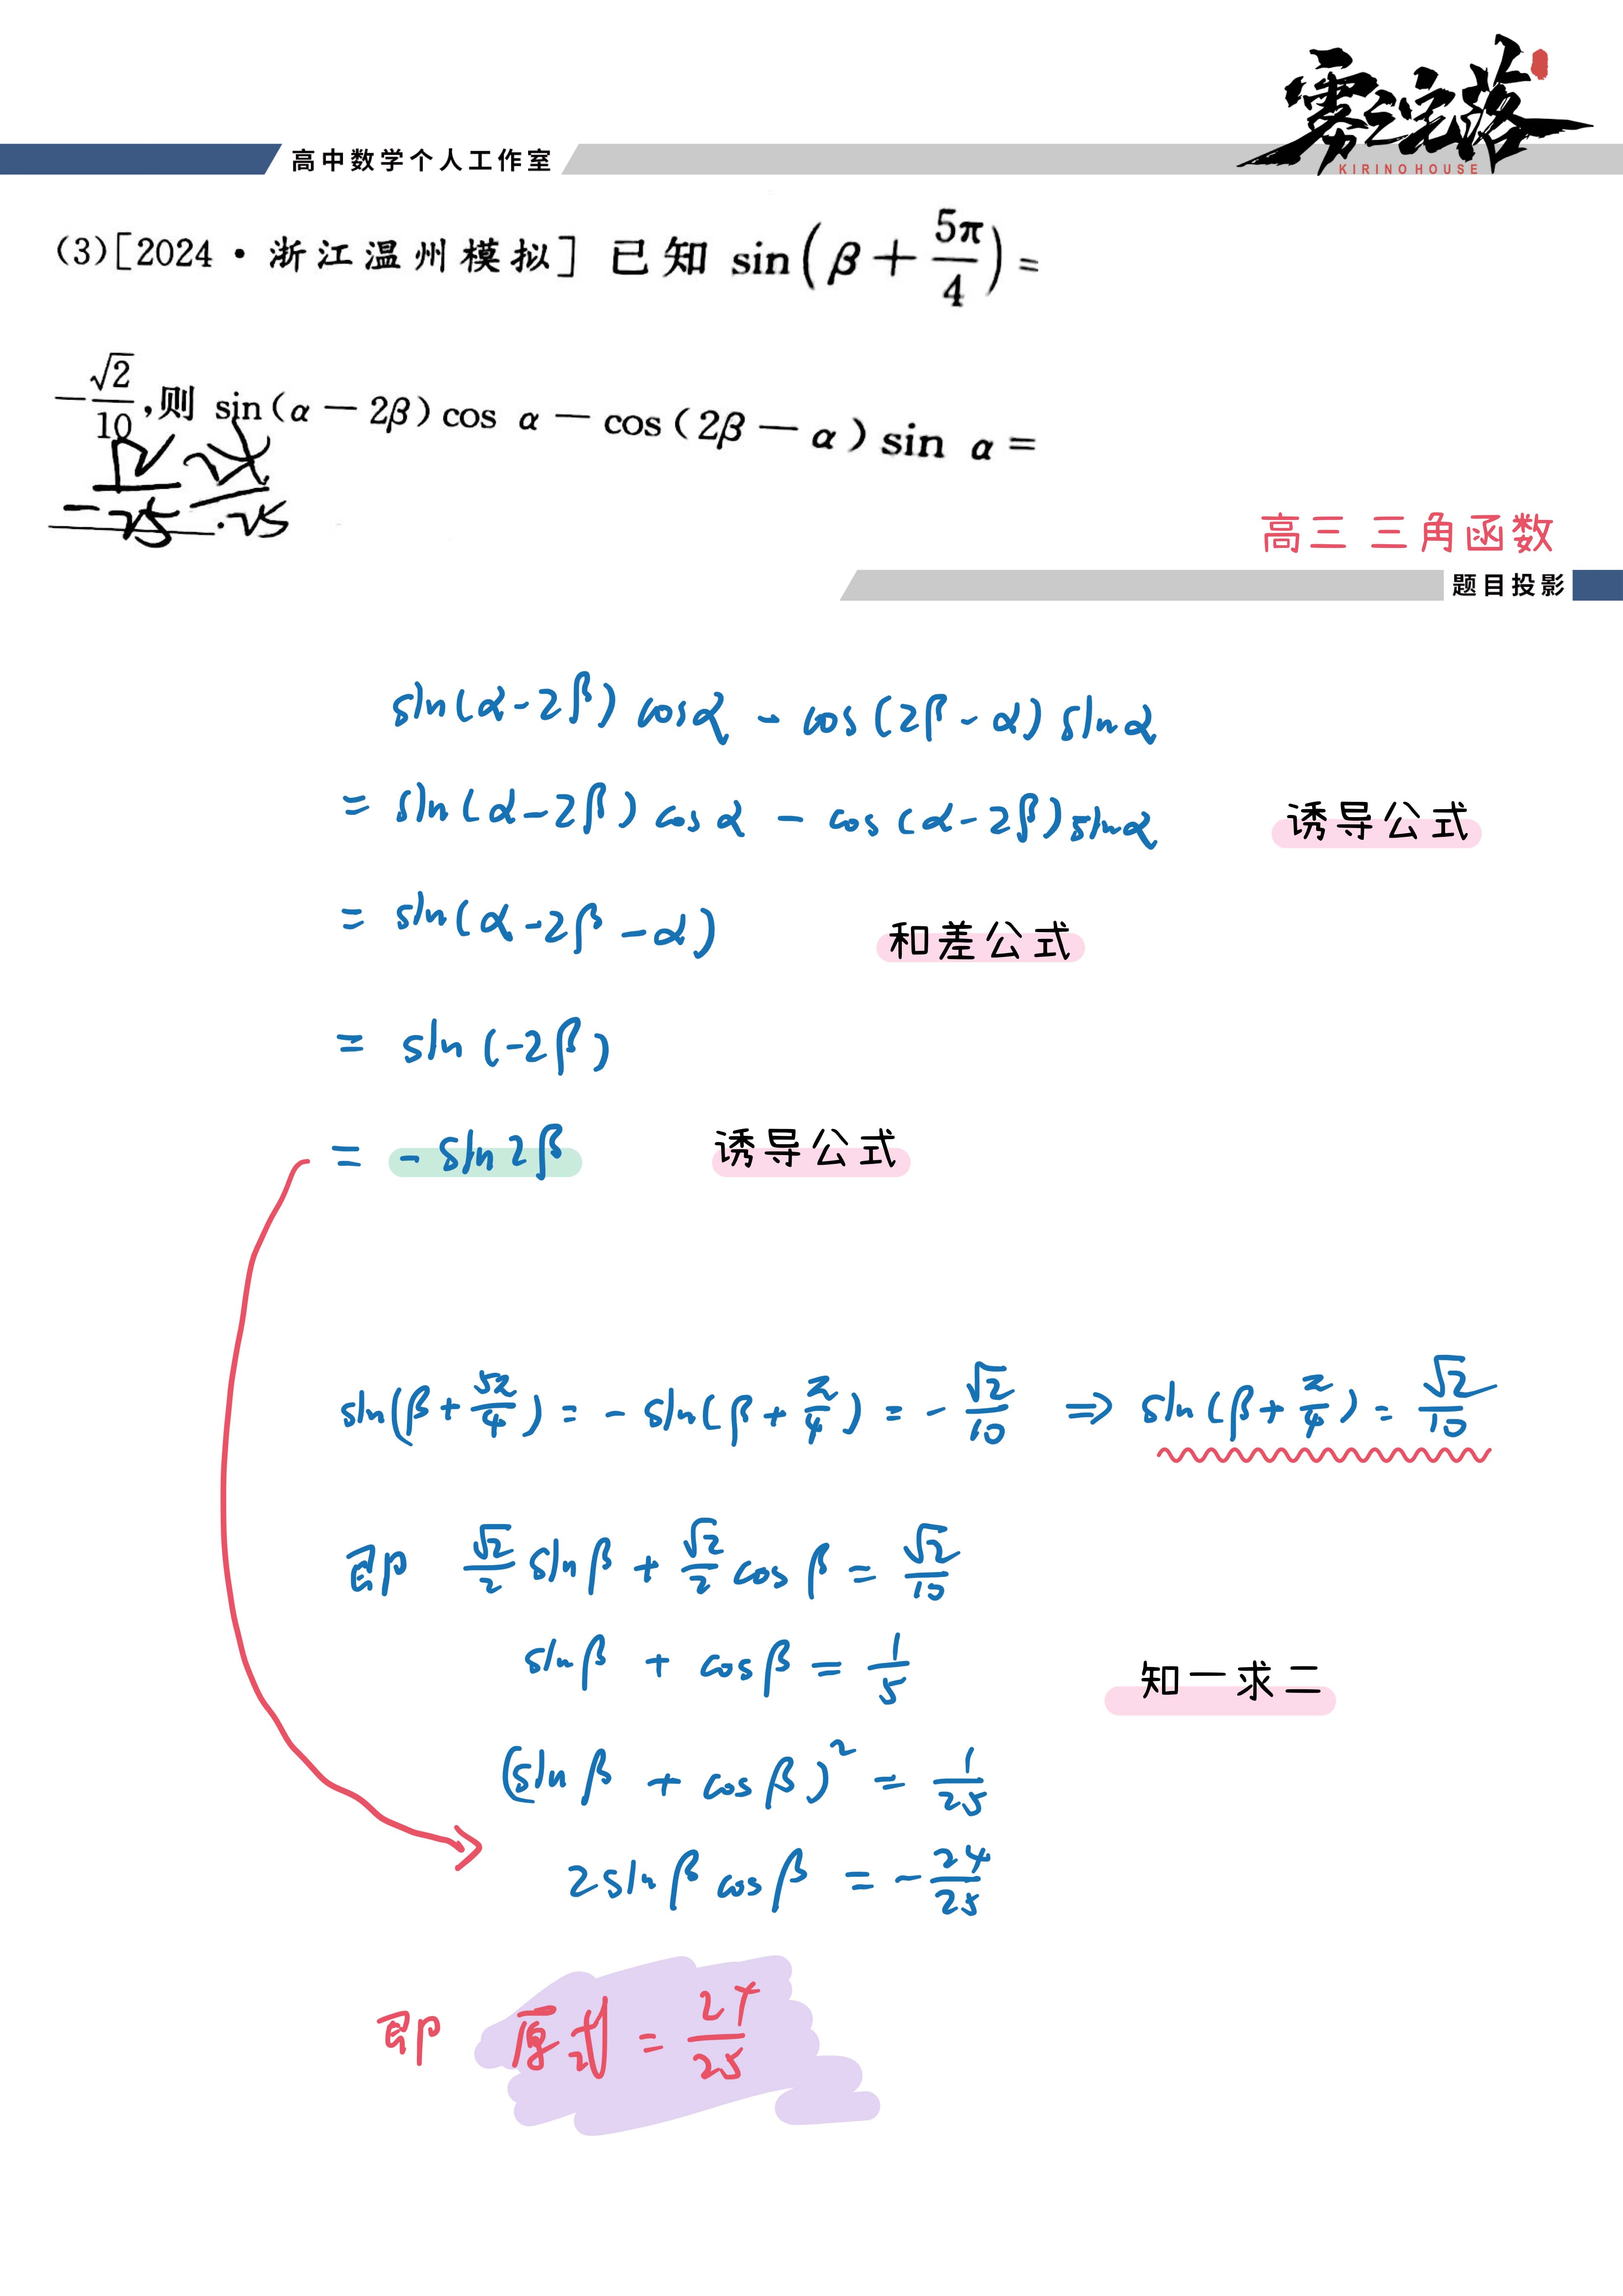 雾之宅落
KIRINO HOUSE
高中数学个人工作室
(3)[2024·浙江温州模拟] 已知 sin(β+5π/4)=
-√2/10,则 sin(α-2β)cos α-cos(2β-α)sin α=
高三 三角函数
题目投影
sin(α-2β)cosα-cos(2β-α)sinα
=sin(α-2β)cosα-cos(α-2β)sinα 诱导公式
=sin(α-2β-α) 和差公式
=sin(-2β)
=-sin2β 诱导公式
sin(β+5π/4)=-sin(β+π/4)=-√2/10 ⇒ sin(β+π/4)=√2/10
即 √2/2 sinβ+√2/2 cosβ=√2/10
sinβ+cosβ=1/5 知一求二
(sinβ+cosβ)²=1/25
2sinβcosβ=-24/25
即 原式=24/25